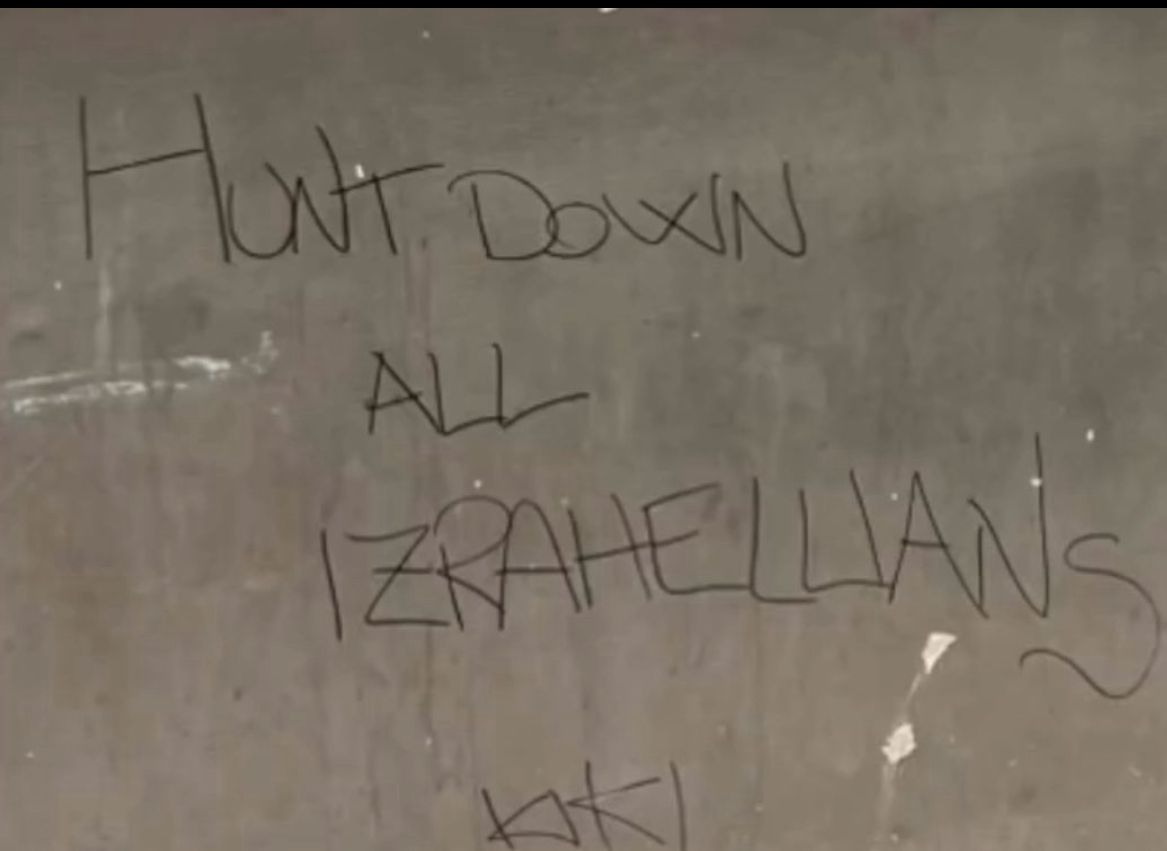 HUNT DOWN
ALL
IZRAHELLIANS